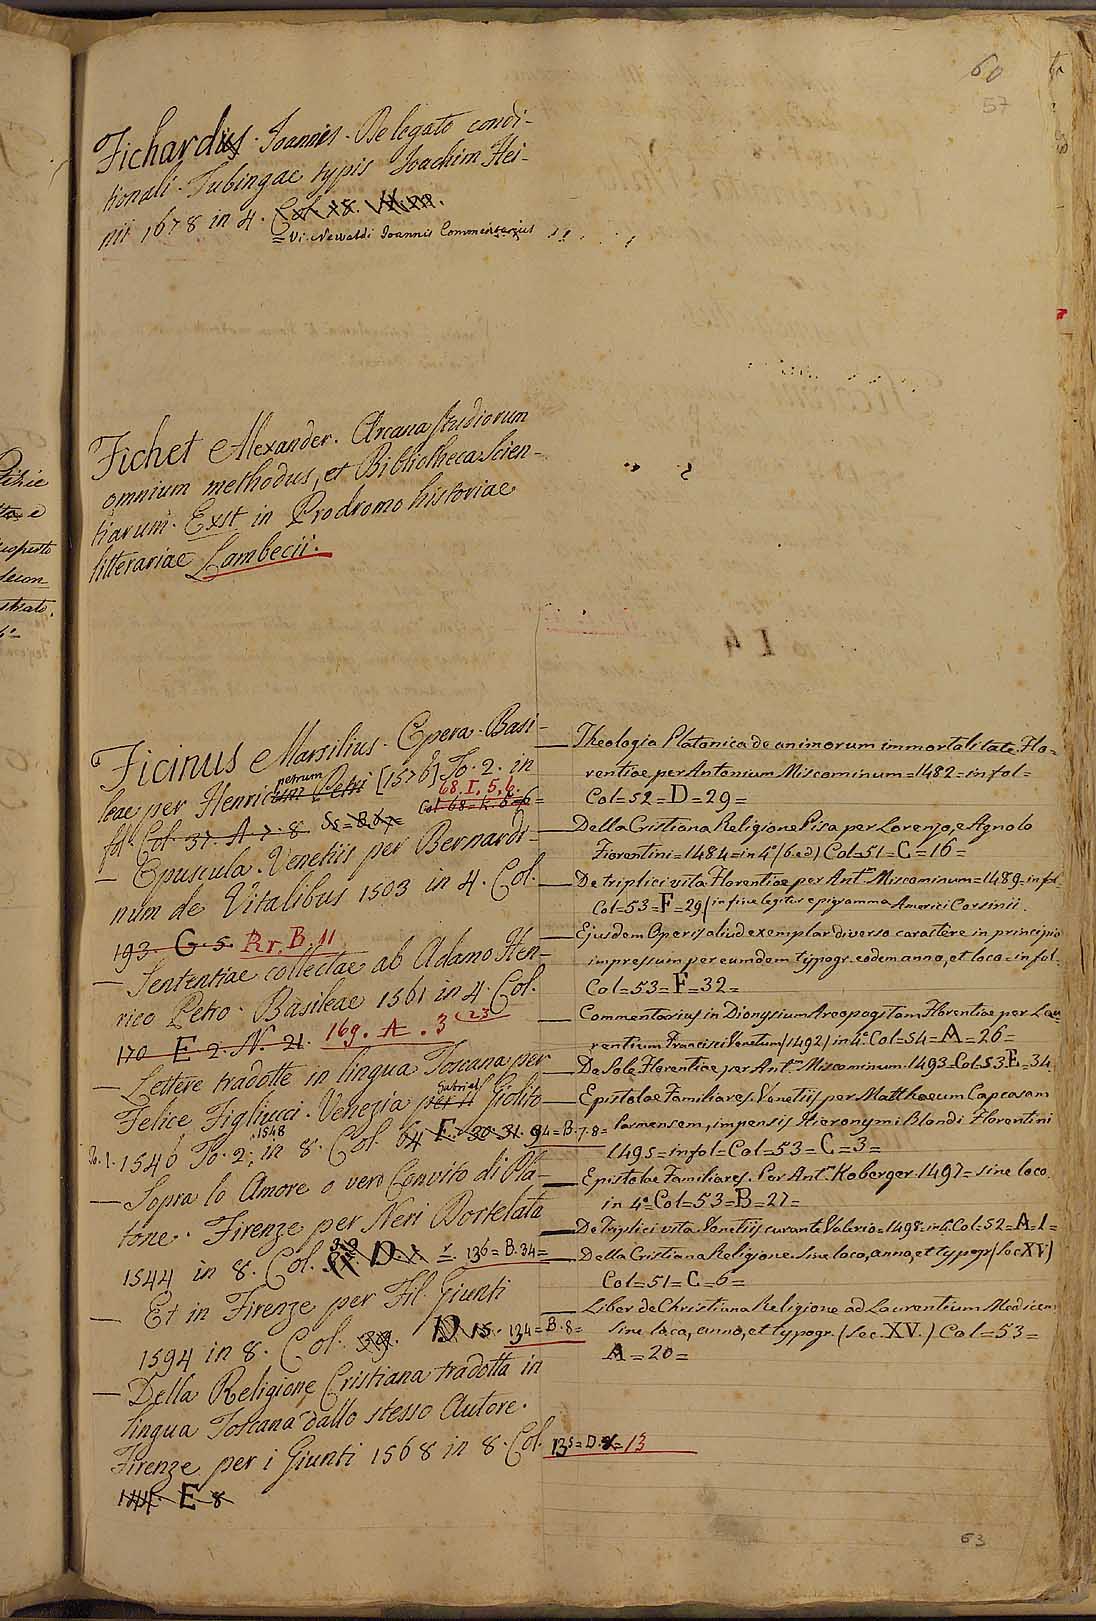 60
57
Fichardus Joannis. De legato condi-
tionali. Tubingae typis Joachim Hei-
nii 1678 in 4. Col.
= Vi. Newaldi Joannis Commentarius
Fichet Alexander. Arcana studiorum
omnium methodus, et Bibliotheca Scien-
tiarum. Exst in Prodromo historiae
litterariae Lambecii.
Ficinus Marsilius. Opera. Basi-
leae per Henricum petrum Petri [1576] To. 2. in
fol. Col. 37. A. 7. 8. 68. I, 5, 6.
— Opuscula. Venetiis per Bernardi-
num de Vitalibus 1503 in 4. Col.
193. G. 5. Rr. B. 11
— Sententiae collectae ab Adamo Hen-
rico Petro. Basileae 1561 in 4. Col.
170 E 2. N. 21. 169. A. 3 (23
— Lettere tradotte in lingua Toscana per
Felice Figliucci. Venezia per il Gabriel Giolito
To. 1. 1546 To. 2. 1548 in 8. Col. 64 E. 30. 31. 94=B.7.8=
— Sopra lo Amore o vero Convito di Pla-
tone. Firenze per Neri Dortelata
1544 in 8. Col. D. 136=B.34=
— Et in Firenze per Fil. Giunti
1594 in 8. Col. 39. D 15. 134=B.8=
— Della Religione Cristiana tradotta in
lingua Toscana dallo stesso Autore.
Firenze per i Giunti 1568 in 8. Col. 135=D.8=13
114. E 8
— Theologia Platonica de animorum immortalitate. Flo=
rentiae per Antonium Miscominum=1482=in fol=
Col=52=D=29=
— Della Cristiana Religione Pisa per Lorenzo, e Agnolo
Fiorentini=1484=in 4º (6. ed) Col=51=C=16=
— De triplici vita Florentiae per Antm Miscominum=1489=in fol
Col=53=F=29 (in fine legitur epigramma Americi Corsinii.
— Ejusdem Operis aliud exemplar diverso caractere in principio
impressum per eumdem typogr. eodem anno, et loco=in fol.
Col=53=F=32=
— Commentarius in Dionysium Areopagitam Florentiae per Lau
rentium Francisci Venetum (1492) in 4º Col=54=A=26=
— De Sole Florentiae per Antm Miscominum. 1493. Col. 53. E=34
— Epistolae Familiares. Venetiis per Matthaeum Capcasam
Parmensem, impensis Hieronymi Blondi Florentini
1495=in fol=Col=53=C=3=
— Epistolae Familiares. Per Antm Koberger. 1497=sine loco
in 4º=Col=53=B=27=
— De Triplici vita Venetiis curante Valerio=1498=in 4º Col=52=A=1=
— Della Cristiana Religione. Sine loco, anno, et typogr (sec XV)
Col=51=C=6=
— Liber de Christiana Religione ad Laurentium Medicem
sine loco, anno, et typogr. (sec. XV.) Col=53=
A=20=
63